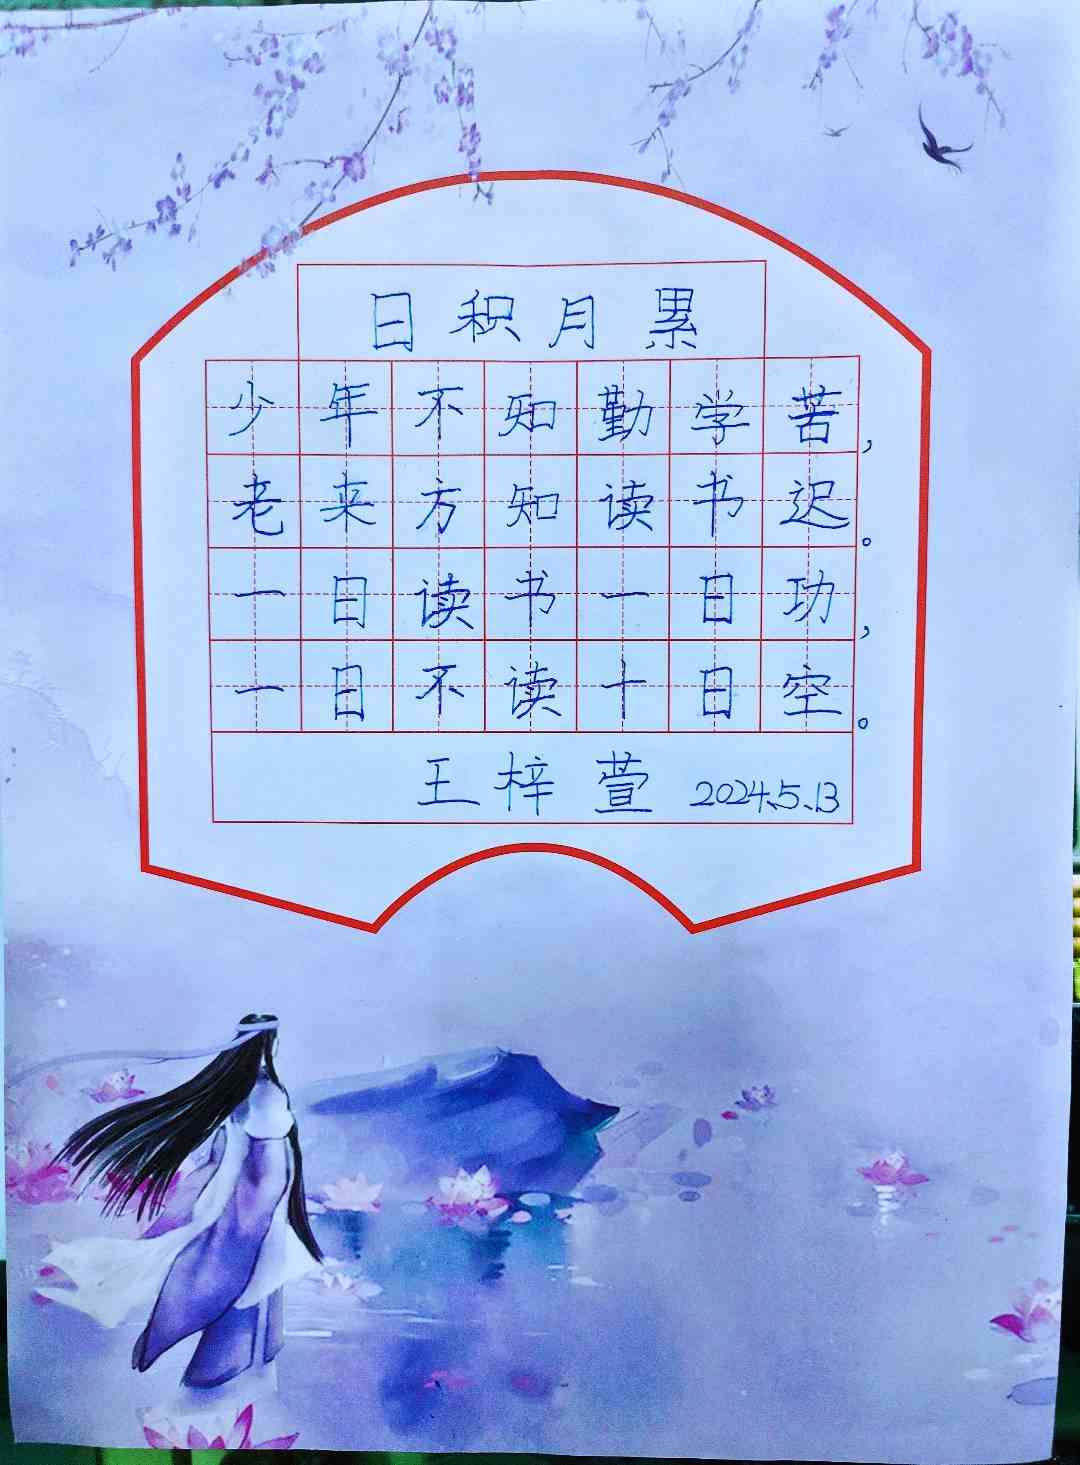 日积月累
少年不知勤学苦，
老来方知读书迟。
一日读书一日功，
一日不读十日空。
王梓萱 2024.5.13